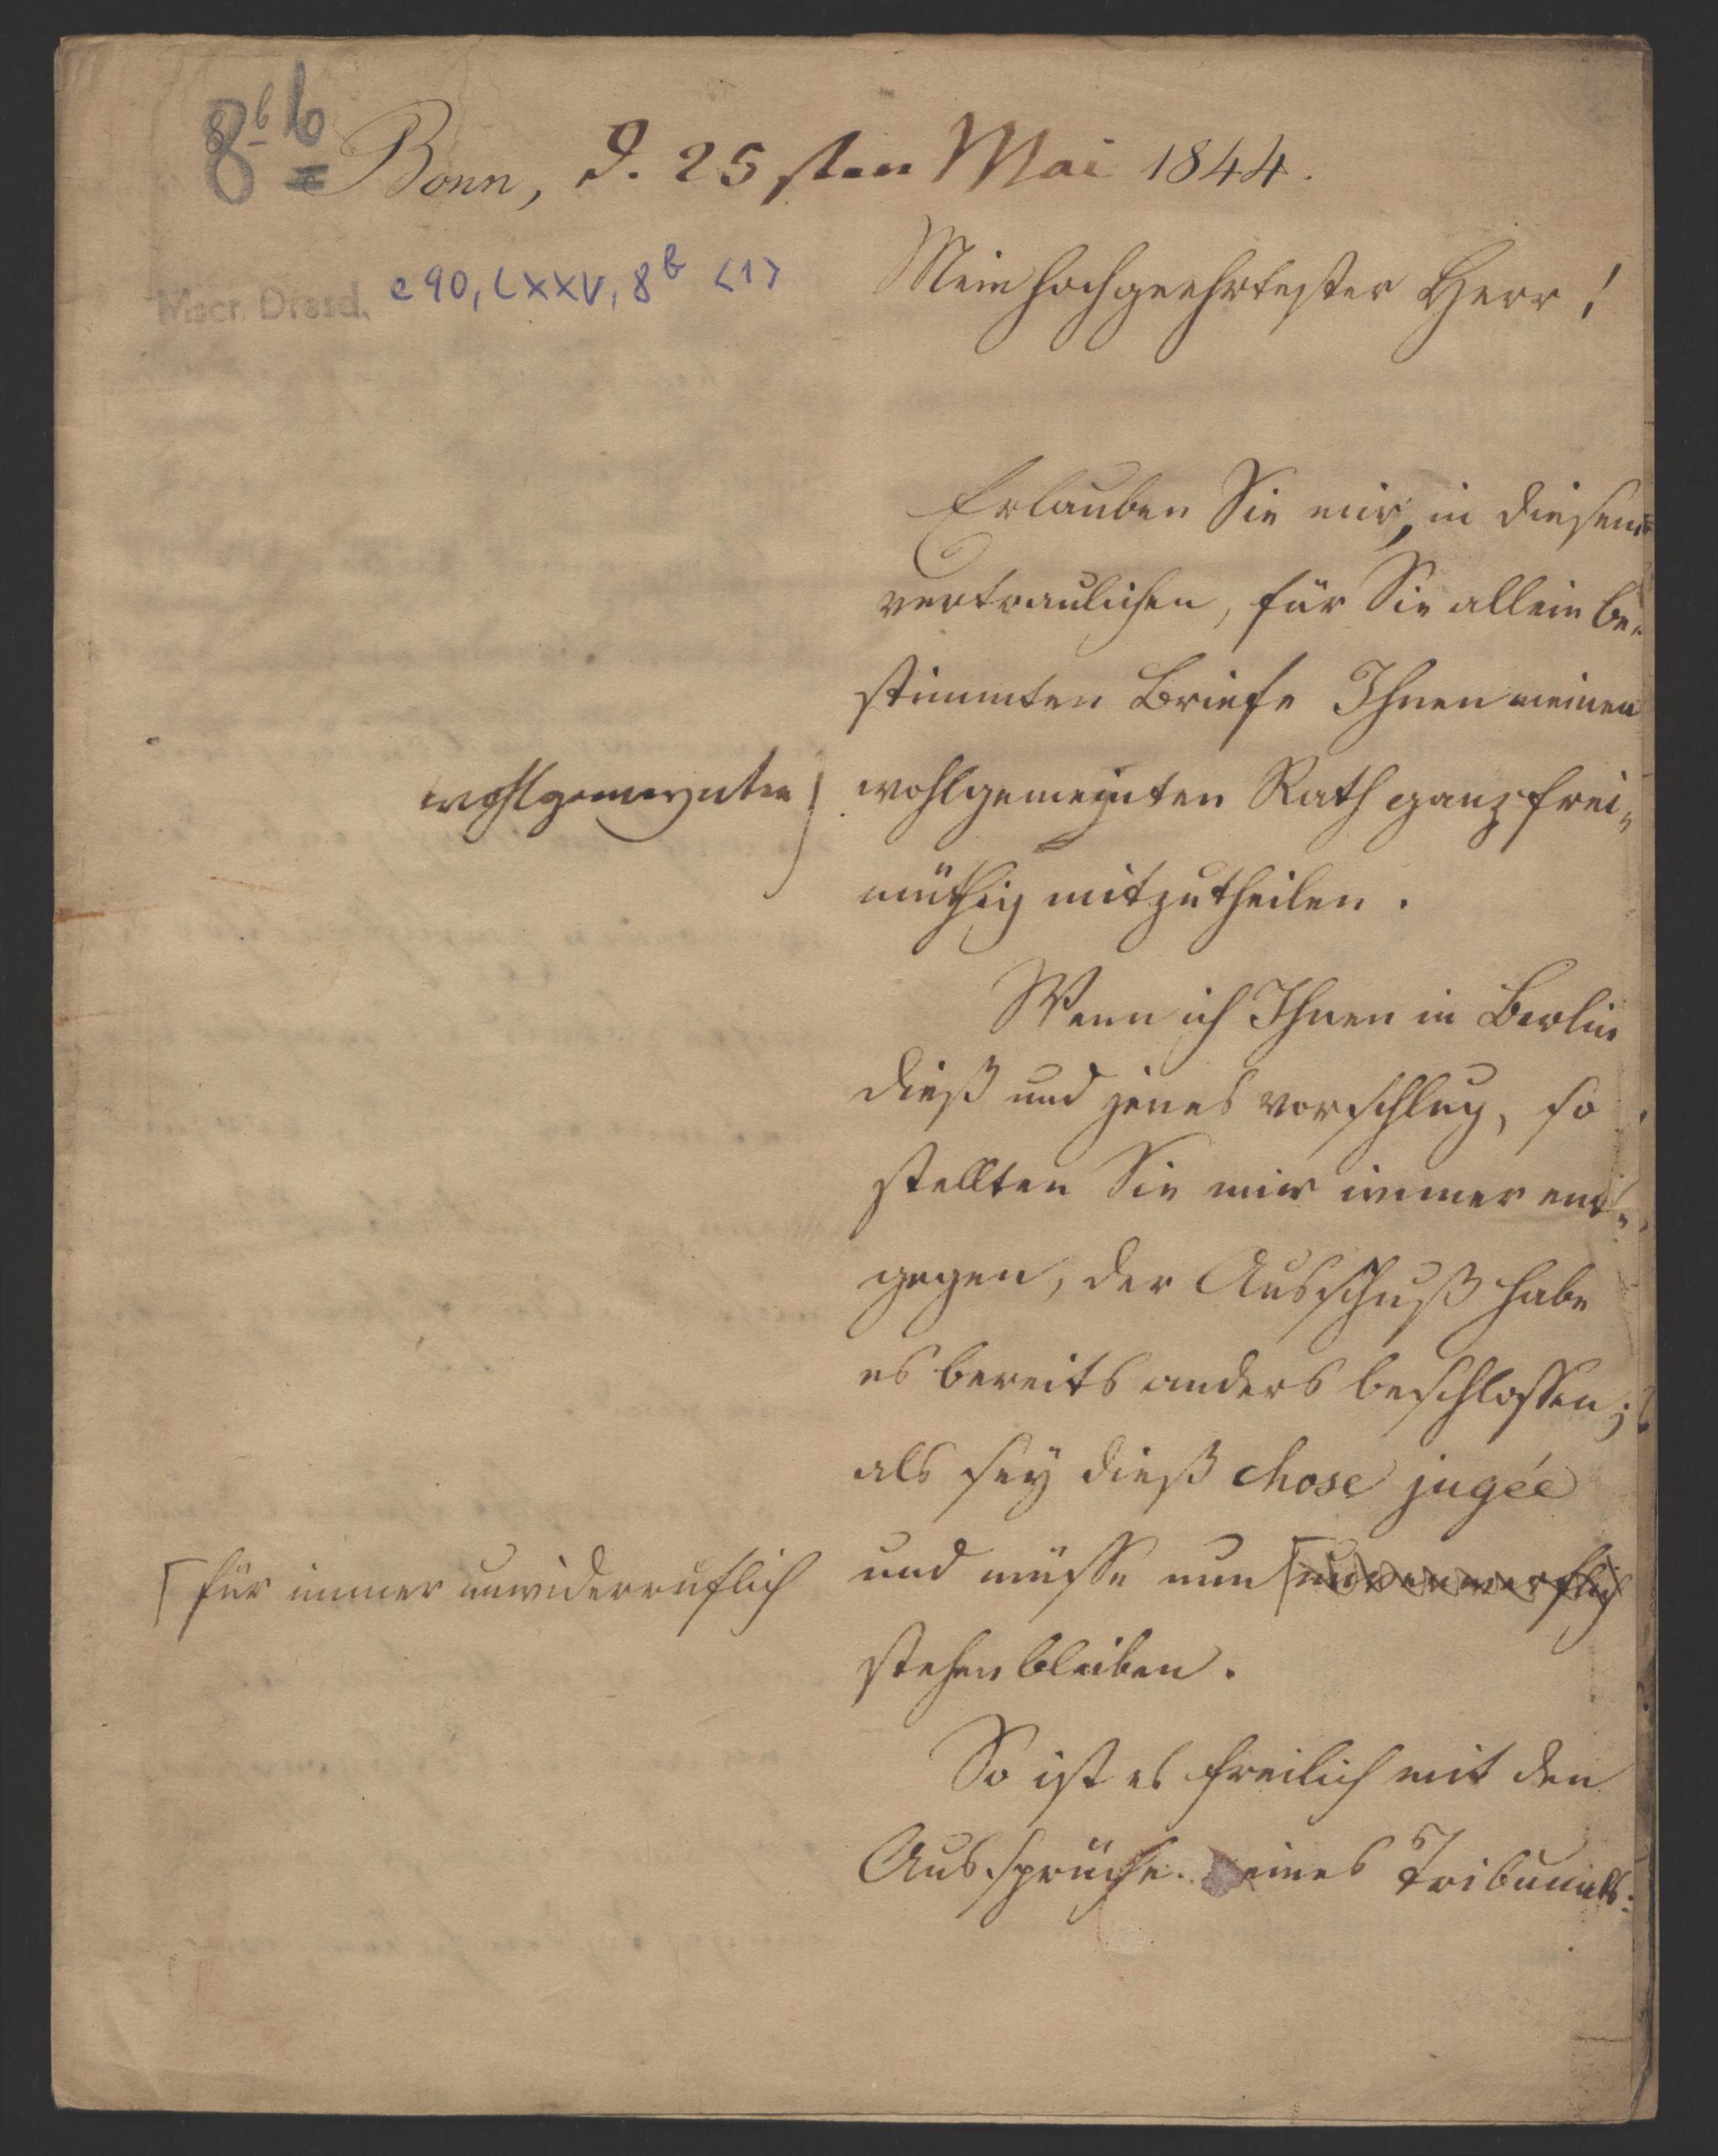 8b b
Bonn, d. 25sten Mai 1844.
Mscr. Dresd. e 90, LXXV, 8b <1>
Mein hochgeehrtester Herr!
Erlauben Sie mir, in diesem
vertraulichen, für Sie allein be-
stimmten Briefe Ihnen meinen
wohlgemeynten
wohlgemeynten Rath ganz frei-
müthig mitzutheilen.
Wenn ich Ihnen in Berlin
dieß und jenes vorschlug, so
stellten Sie mir immer ent-
gegen, der Ausschuß habe
es bereits anders beschlossen;
als sey dieß chose jugée
und müsse nun
für immer unwiderruflich
stehen bleiben.
So ist es freilich mit den
Aussprüche eines Tribunals: